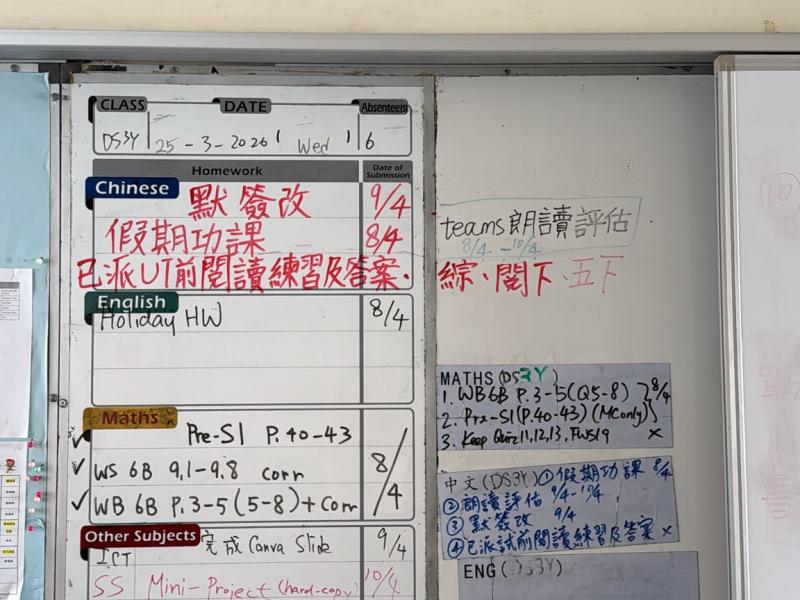 CLASS DATE Absentee(s)
DS3Y 25-3-2026 Wed 6
Homework Date of Submission
Chinese 默簽改 9/4
假期功課 8/4
已派UT前閱讀練習及答案、綜、閱下、五下
teams朗讀評估
8/4 - 10/4
English
Holiday HW 8/4
Maths
✓ Pre-S1 P.40-43
✓ WS 6B 9.1-9.8 corr 8/4
✓ WB 6B P.3-5(5-8)+Corr
Other Subjects
ICT 完成 Canva Slide 9/4
SS Mini-Project (hard-copy) 10/4
MATHS (DS3Y)
1. WB6B P.3-5(Q5-8) } 8/4
2. Pre-S1(P.40-43)(MC only)
3. Keep Quiz 11,12,13, FWS19 ×
中文(DS3Y)①假期功課 8/4
②朗讀評估 8/4-10/4
③默簽改 9/4
④已派試前閱讀練習及答案 ×
ENG (DS3Y)